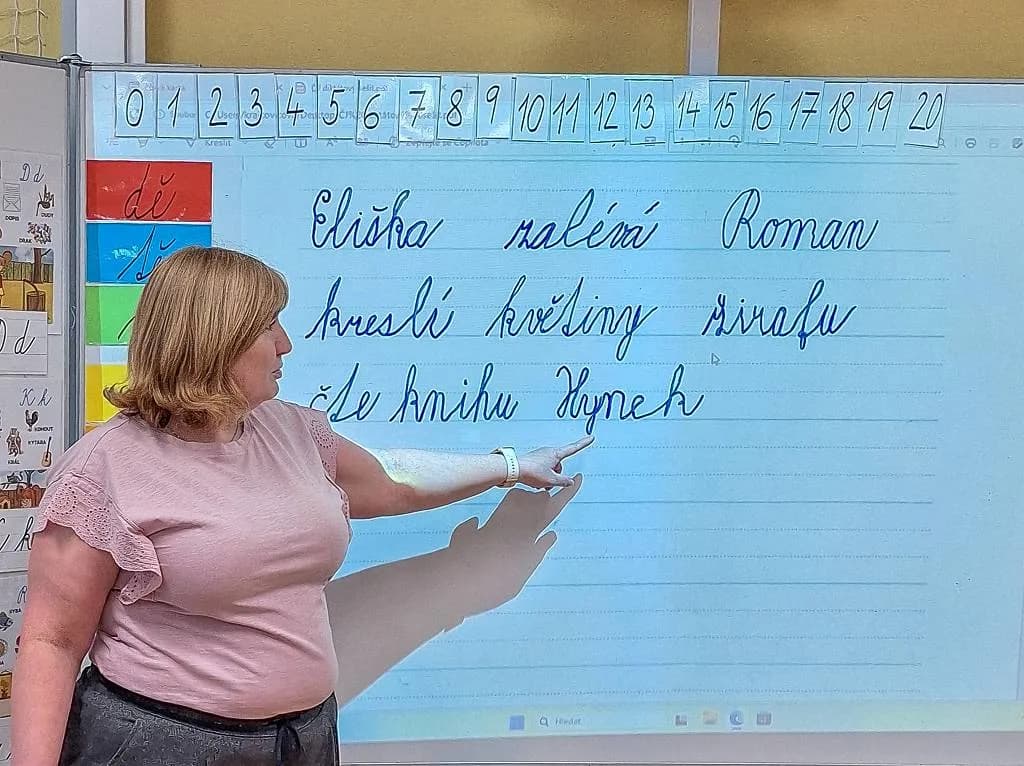 0 1 2 3 4 5 6 7 8 9 10 11 12 13 14 15 16 17 18 19 20
Kreslit
Zeptejte se Copilota
D d
DOPIS DUDY
DRAK
dě
Eliška zalévá Roman
kreslí květiny žirafu
D d
čte knihu Hynek
K k
KOHOUT
KYTARA
KRÁL
Hledat